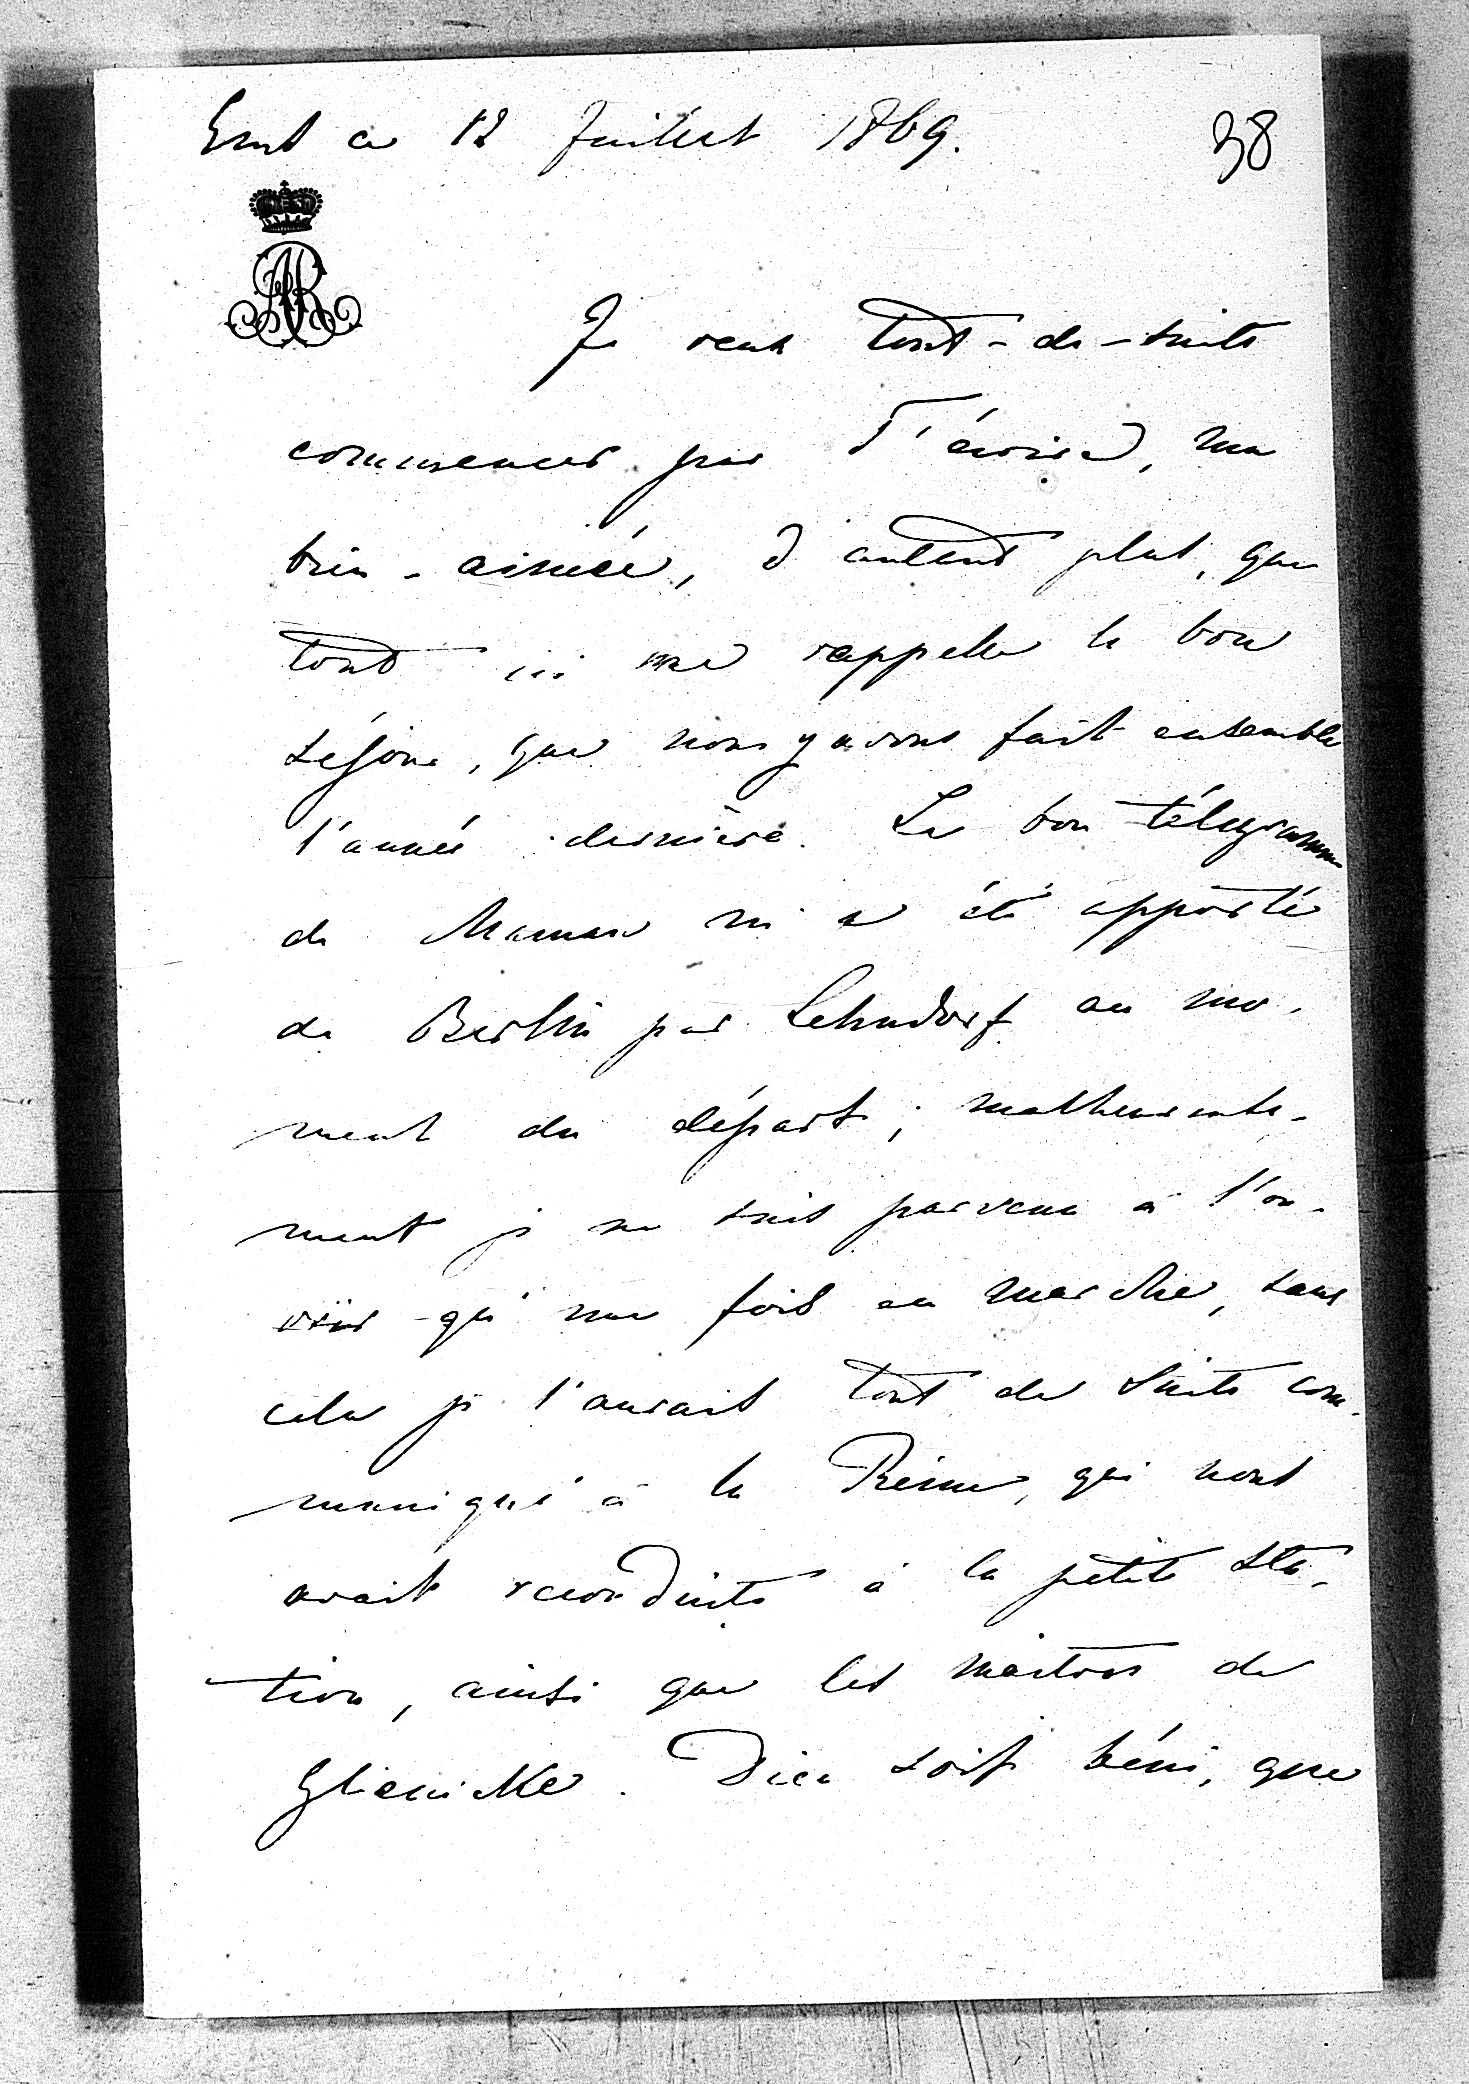 Ems ce 12 Juillet 1869.
38
Je veux tout-de-suite
commencer par T'écrire, ma
bien-aimée, d'autant plus, que
tout ici me rappelle le bon
séjour, que nous y avons fait ensemble
l'année dernière. Le bon télégramme
de Maman m'a été apporté
de Berlin par Lehndorf au mo-
ment du départ; malheureuse-
ment je ne suis parvenu à l'ou-
vrir qu'une fois en marche, sans
cela je l'aurait tout de suite com-
muniqué à la Reine, qui nous
avait reconduits à la petite sta-
tion, ainsi que les maîtres de
Glienicke. Dieu soit béni, que